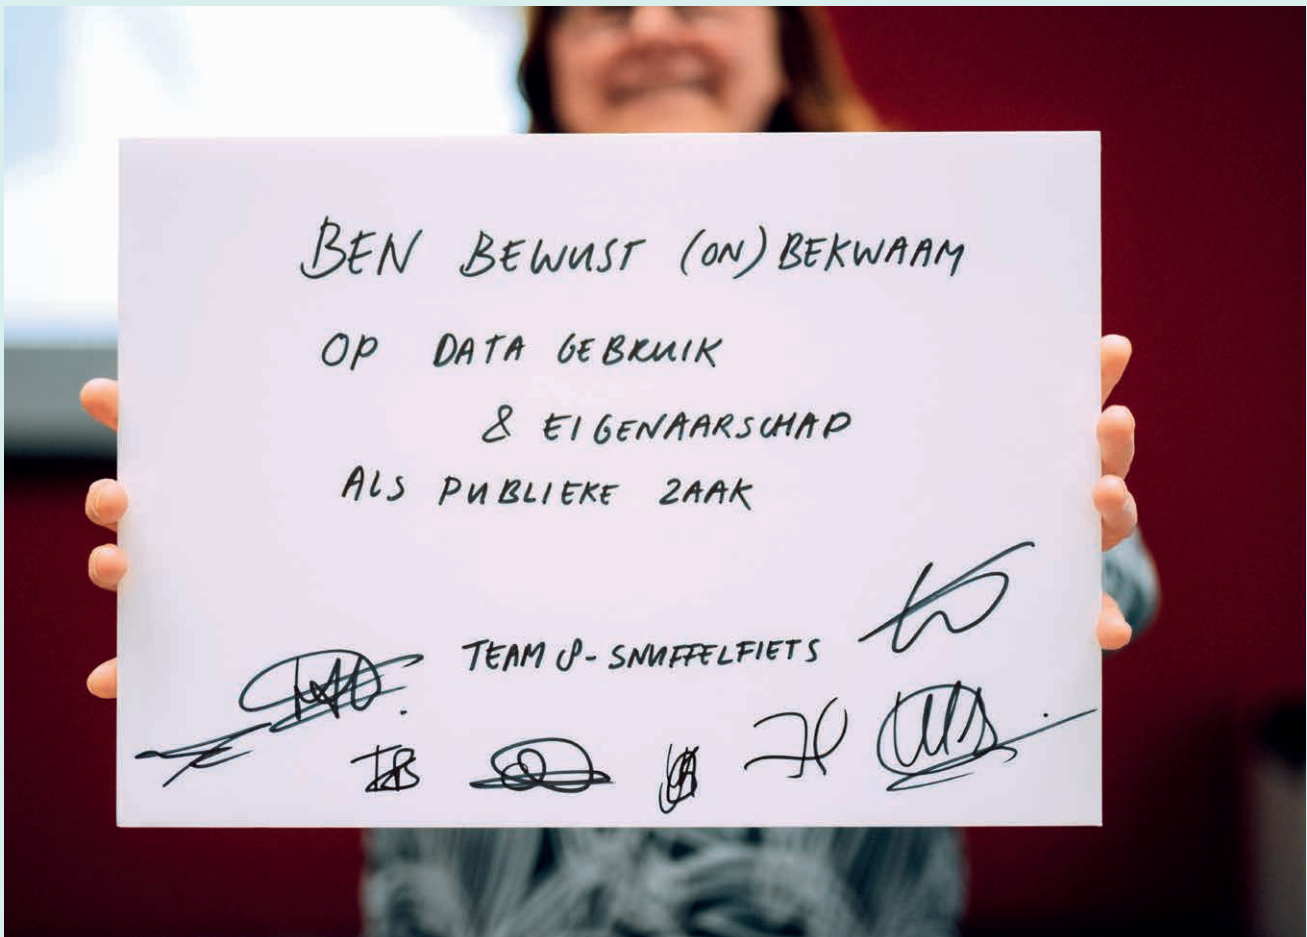 BEN BEWUST (ON)BEKWAAM
OP DATA GEBRUIK
& EIGENAARSCHAP
ALS PUBLIEKE ZAAK
TEAM 8 - SNUFFELFIETS